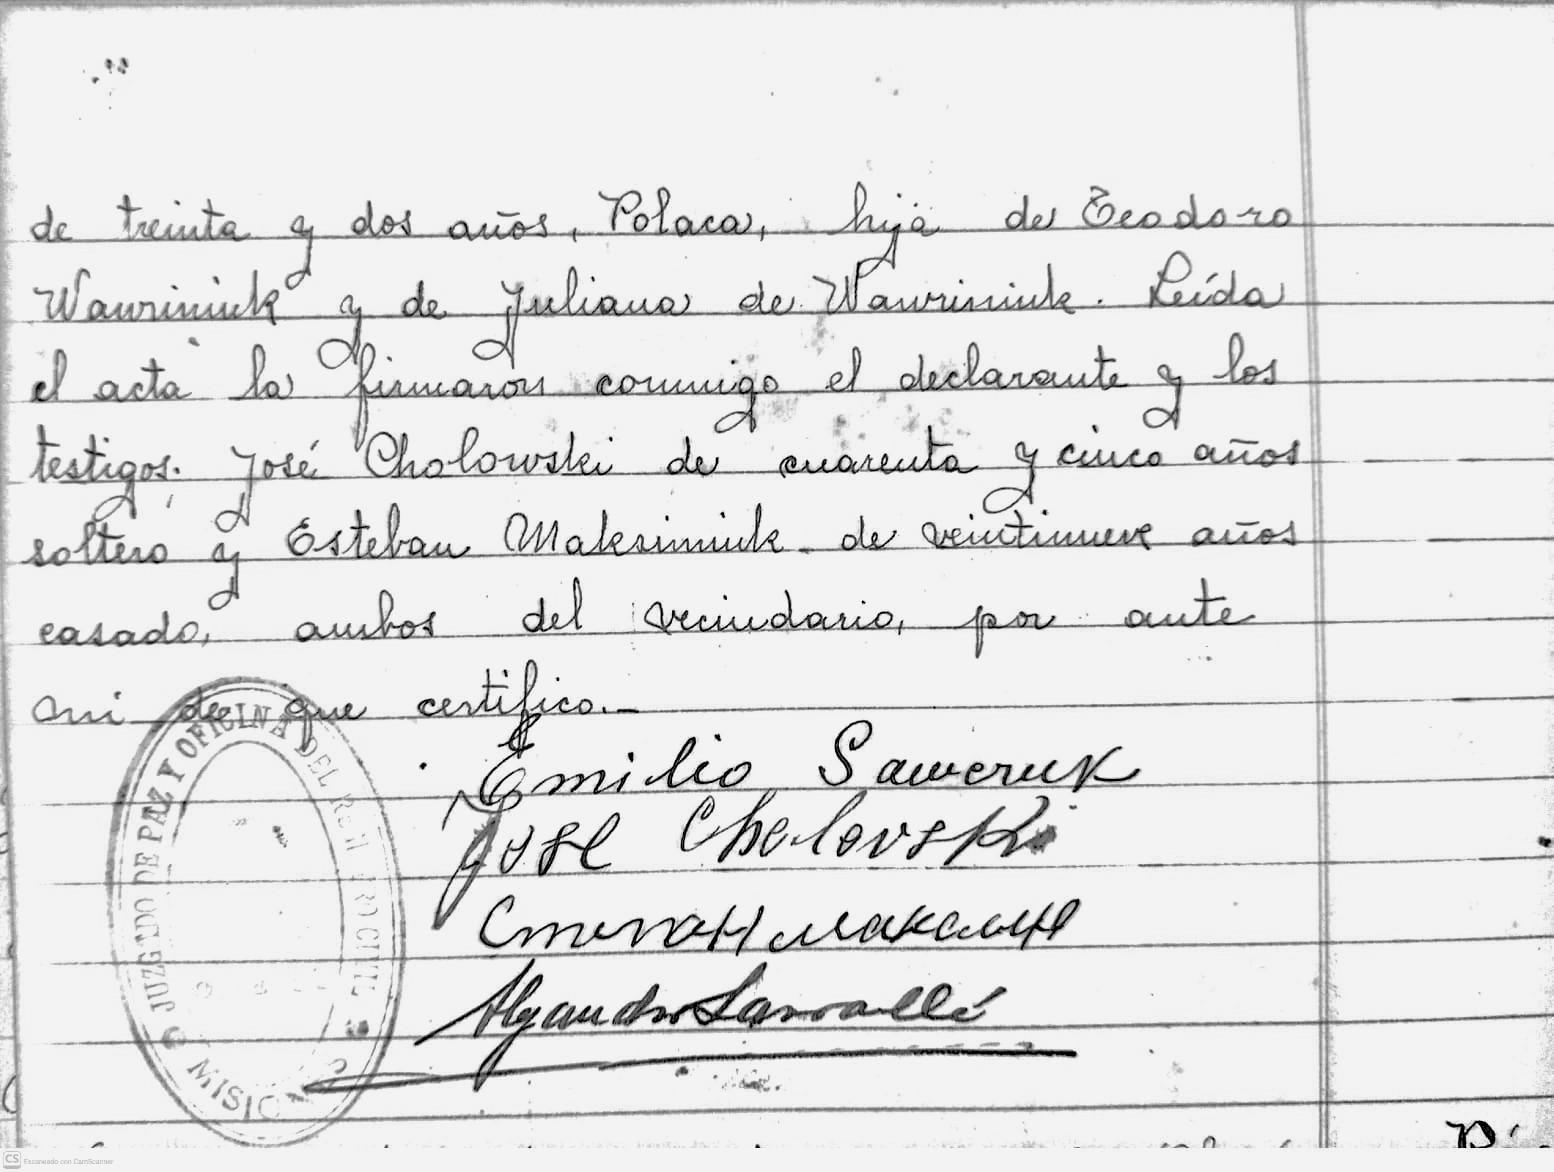 de treinta y dos años, Polaca, hija de Teodoro
Wawriniuk y de Juliana de Wawriniuk. Leída
el acta la firmaron conmigo el declarante y los
testigos. José Cholowski de cuarenta y cinco años
soltero y Esteban Maksimiuk de veintinueve años
casado, ambos del vecindario, por ante
mi de que certifico.-
Emilio Saweruk
José Cholovski
Степан
Alejandro
JUZGADO DE PAZ Y OFICINA DEL CIVIL
MISIONES
CS Escaneado con CamScanner